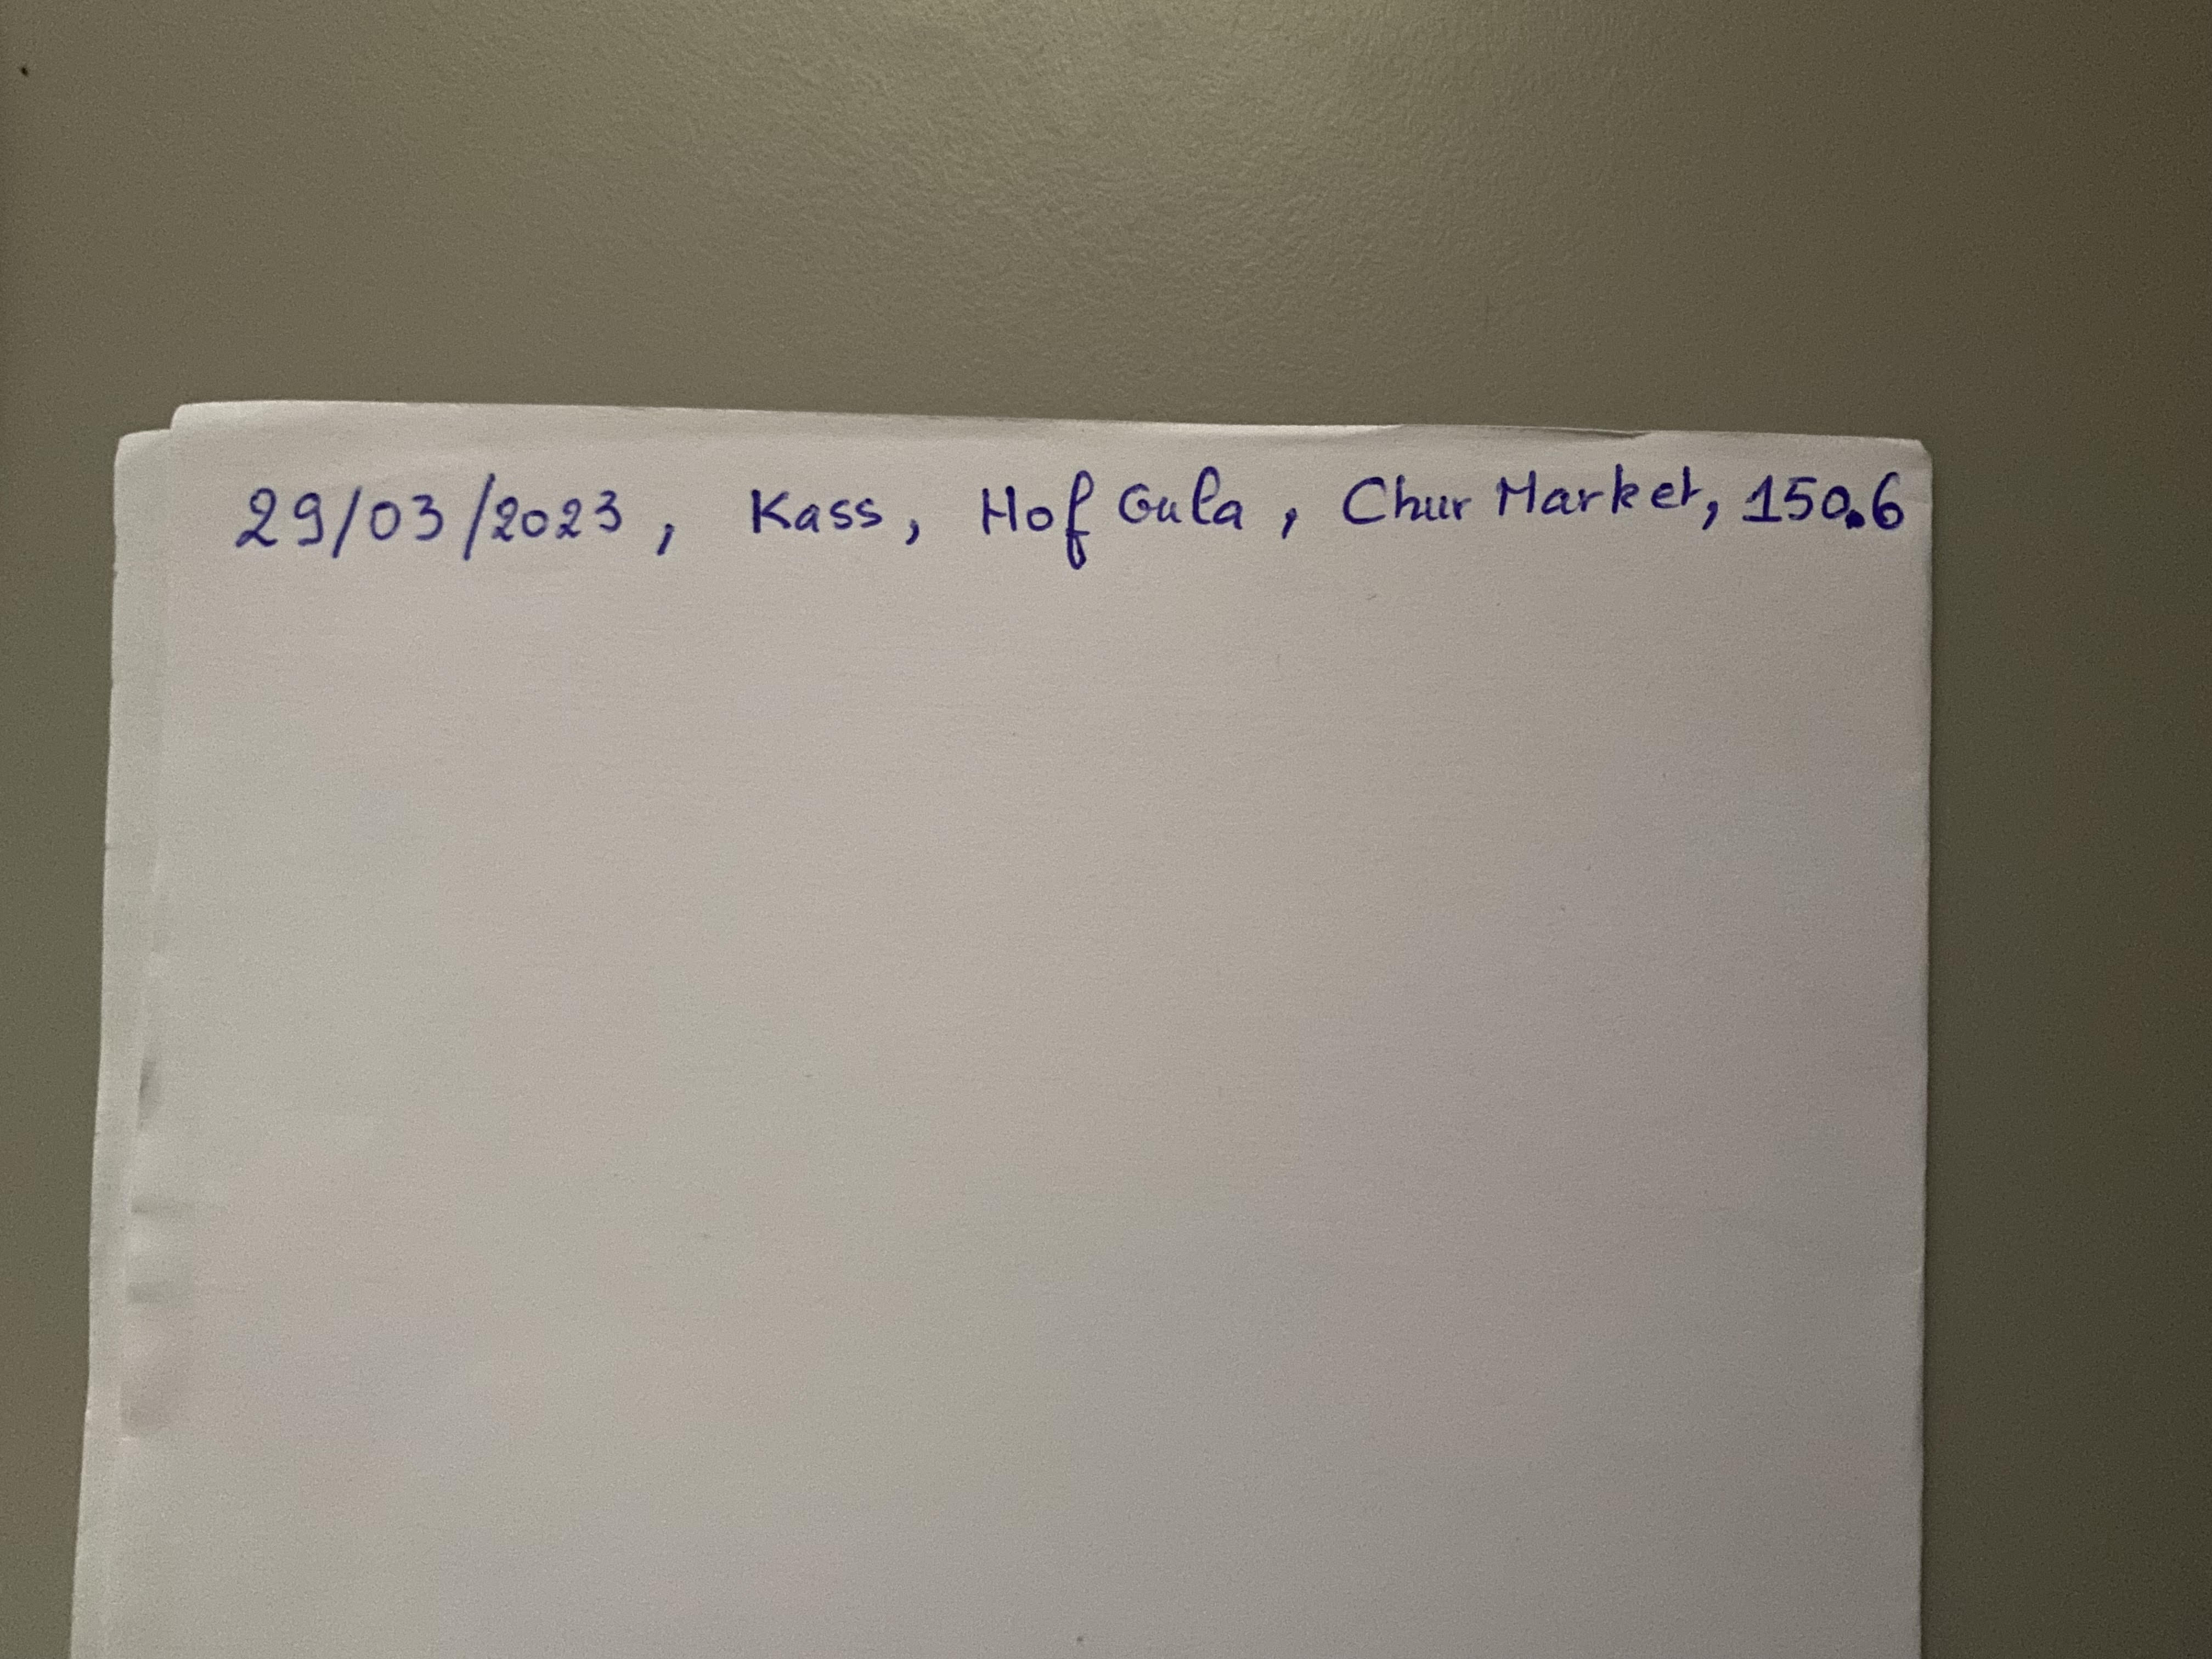 29/03/2023, Kass, Hof Gula, Chur Market, 150.6